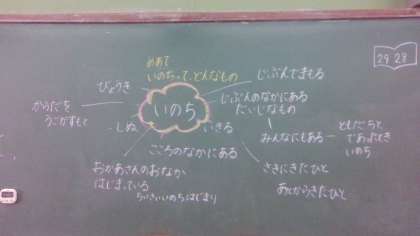 めあて
いのちって、どんなもの
29 28
びょうき
じぶんでまもる
からだを
うごかすもと
いのち
じぶんのなかにある
だいじなもの
しぬ
いきる
みんなにもある
ともだちと
であったとき
いのち
こころのなかにある
おかあさんのおなか
はじまっている
ちいさいいのちはじまり
さきにきたひと
あとからきたひと